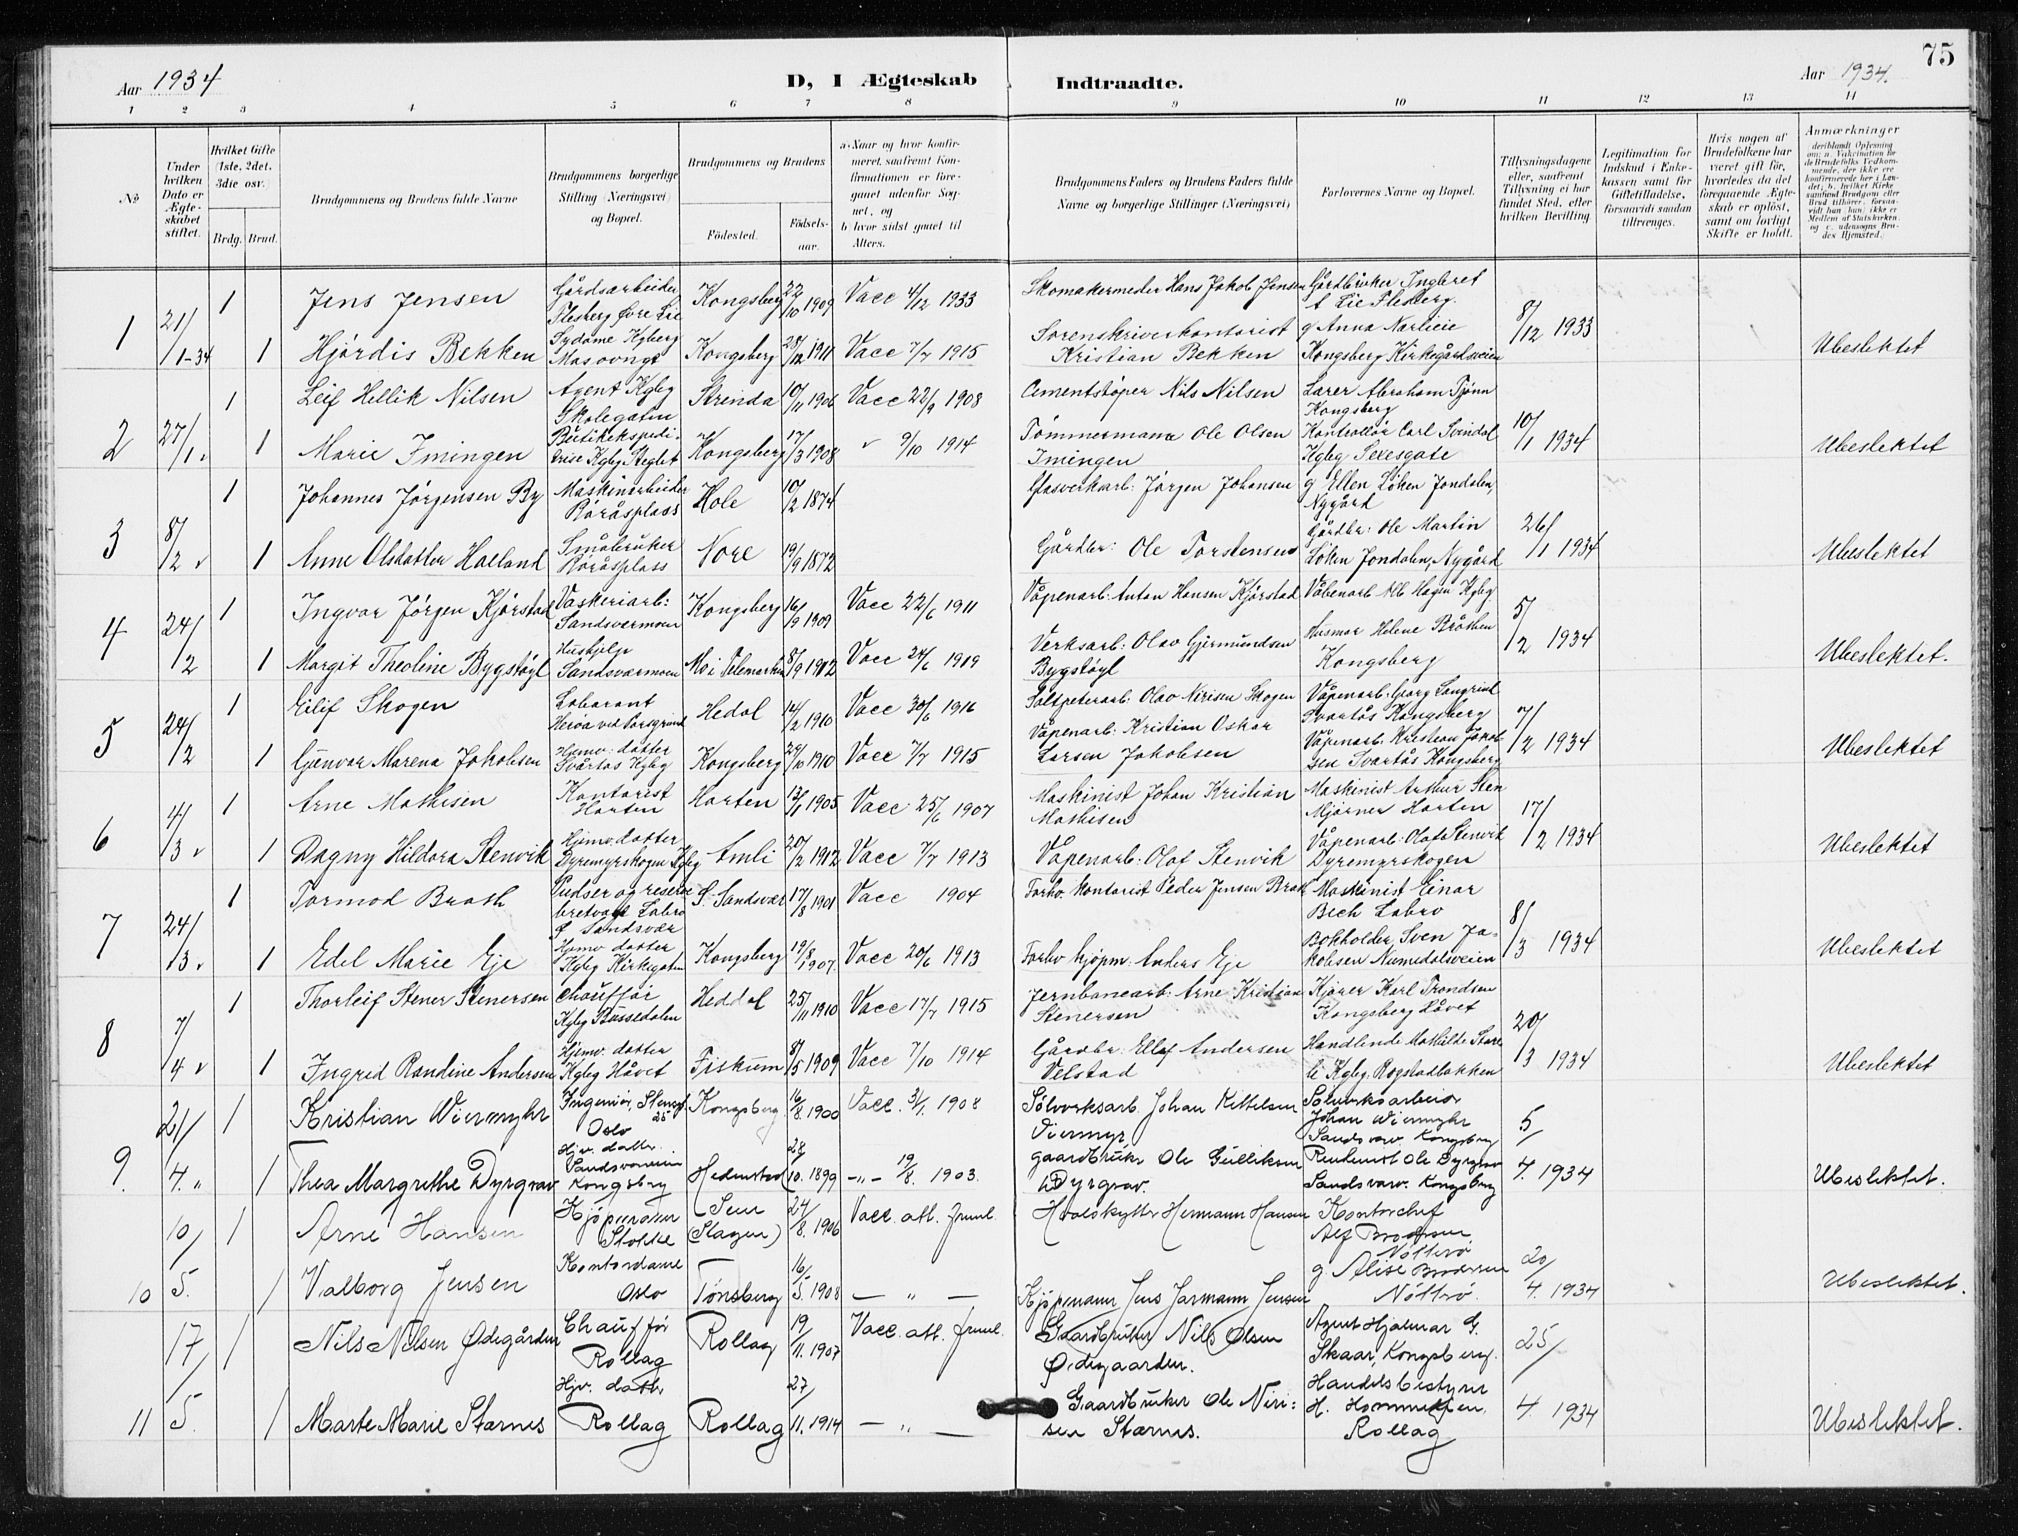 75
Aar 1934
D, I Ægteskab
Indtraadte.
Aar 1934.
1 2 3 4 5 6 7 8 9 10 11 12 13 14
No
Under hvilken Dato er Ægteskabet stiftet.
Hvilket Gifte (1ste, 2det, 3die osv.)
Brdg. Brud.
Brudgommens og Brudens fulde Navne
Brudgommens borgerlige Stilling (Næringsvei) og Bopæl.
Brudgommens og Brudens
Fødested. Fødselsaar.
a. Naar og hvor konfirmeret, saafremt Konfirmationen er foregaaet udenfor Sognet, og
b. hvor sidst gaaet til Alters.
Brudgommens Faders og Brudens Faders fulde Navne og borgerlige Stillinger (Næringsvei)
Forlovernes Navne og Bopæl.
Tillysningsdagene eller, saafremt Tillysning ei har fundet Sted, efter hvilken Bevilling.
Legitimation for Indskud i Enkekassen samt for Giftetilladelse, forsaavidt saadan tiltrænges.
Hvis nogen af Brudefolkene har været gift før, hvorledes da det foregaaende Ægteskab er opløst, samt om lovligt Skifte er holdt.
Anmærkninger
1 21/1-34 1 Jens Jensen Gårdsarbeider Flesberg Øvre Lie Kongsberg 22/10 1909 Vacc 4/12 1933 Skomakermester Hans Jakob Jensen Gårdbruker Ingebret t Lie Flesberg 8/12 1933
1 Hjørdis Bekken Sydame Kgberg Kongsberg 1911 Vacc 7/7 1915 Sorenskriverkontorist Kristian Bekken g Anna Kongsberg Kirkegårdsveien Ubeslektet
2 27/1 1 Leif Hellik Nilsen Agent Kgbg Skolegatin Strinda 10/11 1906 Vacc 22/9 1908 Cementstøper Nils Nilsen Lærer Abraham Tjønn Kongsberg 10/1 1934
1 Marie Imingen Butikekspeditrise Kgbg Kongsberg 17/3 1908 9/10 1914 Tømmermann Ole Olsen Imingen Kontrollør Carl Svindal Kgbg Ubeslektet
3 8/2 1 Johannes Jørgensen By Maskinarbeider Råråsplass Hole 10/2 1874 Glasverksarb: Jørgen Johansen g Ellen Løken Jondalen, Nygård 26/1 1934
1 Anne Olsdatter Halland Småbruker Råråsplass Nore 19/9 1872 Gårdbr: Ole Torstensen Gårdbr: Ole Martin Løken Jondalen, Nygård Ubeslektet
4 24/2 1 Ingvar Jørgen Kjørstad Vaskeriarb: Sandsværmoen Kongsberg 16/9 1909 Vacc 22/6 1911 Våpenarb: Anton Hansen Kjørstad Våbenarb Alb Hagen Kgbg 5/2 1934
1 Margit Theoline Bygstøyl Hushjelp Sandsværmoen Mo i Telemarken 8/9 1912 Vacc 24/6 1919 Verksarb: Olav Gjermundsen Bygstøyl Husmor Helene Bråthen Kongsberg Ubeslektet.
5 24/2 1 Eilif Skogen Laborant Herøa ved Porsgrund Hedal 14/2 1910 Vacc 30/6 1916 Saltpeterarb: Olav Nirisen Skogen Våpenarb: Georg Langrind Svartås Kongsberg 7/2 1934
1 Gunvor Marena Jakobsen Hjemv: datter Svartås Kgbg Kongsberg 29/10 1910 Vacc 7/7 1915 Våpenarb: Kristian Oskar Larsen Jakobsen Våpenarb: Kristian Jakobsen Svartås Kongsberg Ubeslektet
6 4/3 1 Arne Mathisen Kontorist Horten Horten 13/1 1905 Vacc 25/6 1907 Maskinist Johan Kristian Mathisen Maskinist Arthur Sten Mjørner Horten 17/2 1934
1 Dagny Hildora Stenvik Hjemv: datter Dyremyrskogen Kgbg Åmli 20/2 1912 Vacc 7/7 1913 Våpenarb: Olaf Stenvik Våpenarb: Olaf Stenvik Dyremyrskogen Ubeslektet
7 24/3 1 Tormod Brath Pudser og reserve Labro Ø Sandsvær Ø. Sandsvær 17/8 1901 Vacc 1904 Forhv. Kontorist Peder Jensen Brath Maskinist Einar Bech Labro 8/3 1934
1 Edel Marie Eje Hjemv datter Kgbg Kirkegaten Kongsberg 19/8 1907. Vacc 20/6 1913 Forhv kjøpm: Anders Eje Bokholder Sven Jakobsen Numedalsveien Ubeslektet
8 7/4 1 Thorleif Stener Stenersen Chauffør Kgbg Bussedalen Heddal 25/11 1910 Vacc 17/7 1915 Jernbanearb: Arne Kristian Stenersen Kjører Karl Trondsen Kongsberg Håvet 20/3 1934
1 Ingrid Randine Andersen Hjemv: datter Kgbg Håvet Fiskum 8/5 1909 Vacc 7/10 1914 Gårdbr: Ellef Andersen Velstad Handlende Mathilde Storeli Kgbg Rogstadbakken Ubeslektet
9. 21/4. 1 Kristian Wiermyhr Ingeniør, Stensg 25 Oslo Kongsberg 16/8. 1900 Vacc. 3/1. 1908 Sølvverksarb. Johan Kittelsen Viermyr Sølvverksarbeider Johan Wiermyhr Sandsværv. Kongsberg 5/4. 1934
1 Thea Margrethe Dyrgrav Hjv. datter. Sandsværveien Kongsberg Hedenstad 28/10. 1899 -„- 19/8. 1903. gaardbruker Ole Gulliksen Dyrgrav. Ole Dyrgrav Sandsværv. Kongsberg Ubeslektet.
10 10/5. 1 Arne Hansen Kjøpmann Stokke Sem (Slagen) 24/8. 1906 Vacc. att. freml. Hvalskytter Hermann Hansen Kontorchef Alf Brodersen Nøtterø 20/4. 1934
1 Valborg Jensen Kontordame Oslo Tønsberg 16/5. 1908 — „ — Kjøpmann Jens Jarmann Jensen g. Alise Brodersen Nøtterø. Ubeslektet.
11 17/5. 1 Nils Nilsen Ødegården Chauffør Rollag Rollag 19/11. 1907 Vacc. att. freml. Gaardbruker Nils Olsen Ødegaarden. Agent Hjalmar G. Skaar, Kongsberg. 25/4. 1934
1 Marte Marie Stærnes Hjv. datter Rollag Rollag 27/11. 1914 — „ — Gaardbruker Ole Nirisen Stærnes. Handelsbestyrer H. Rollag Ubeslektet.